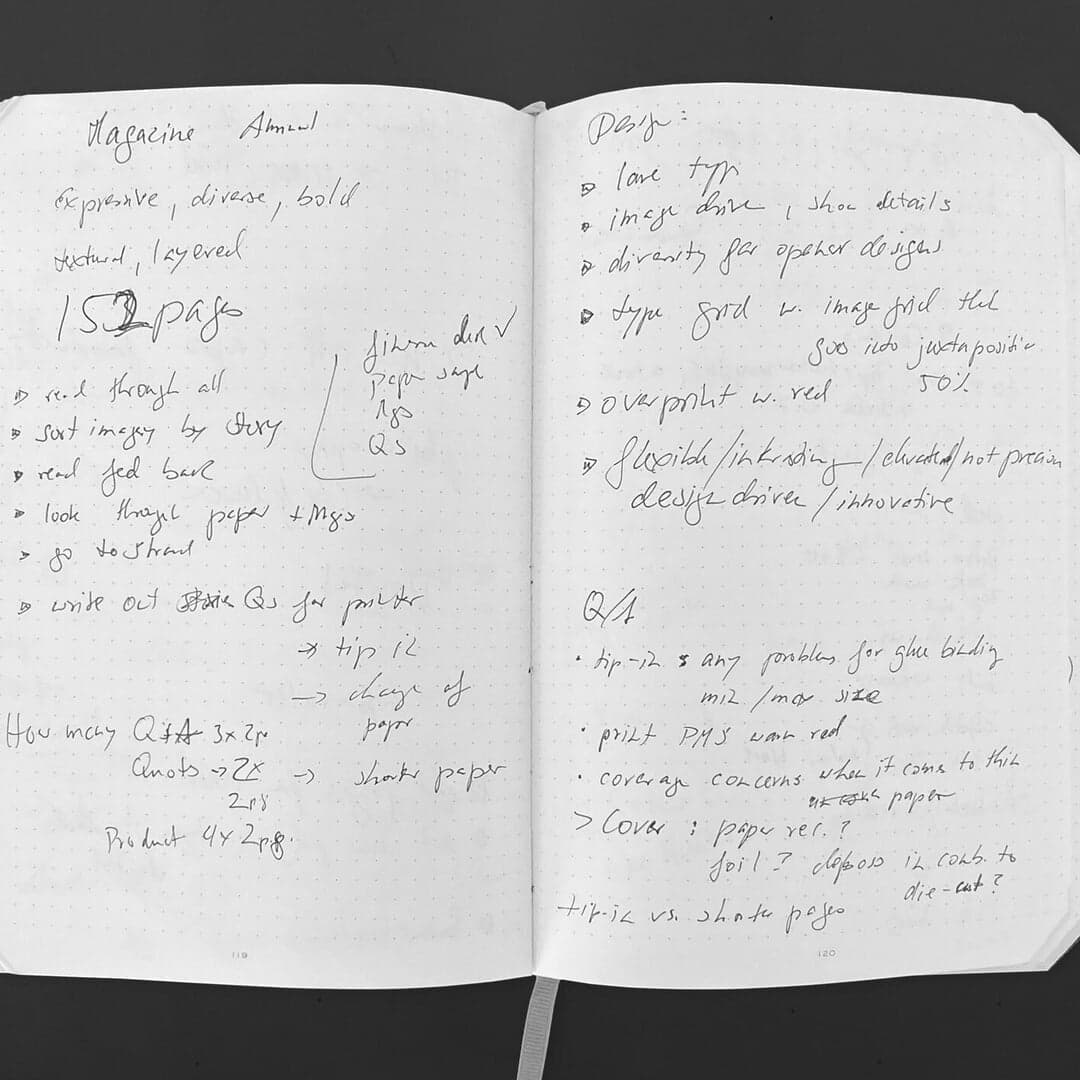 Magazine Annual
expressive, diverse, bold
textural, layered
152 pages
paper
Mgs
QS
read through all
sort imagery by story
read feed back
look through paper + Mgs
go to Strand
write out Qs for printer
→ tip in
→ change of
paper
→ shorter paper
How many Q+A 3x2p
Quots → 2x
2pg
Product 4x2pg.
119
Design:
type
image drive, show details
diversity for opener designs
type grid w. image grid that
goes into juxtaposition
50%
overprint w. red
flexible/ /elevated/not precious
design driven/innovative
Q/A
• tip-in any problems for glue binding
min/max size
• print PMS warm red
• coverage concerns when it comes to thin
paper
> Cover: paper rec.?
foil? deboss in comb. to
die-cut?
tip-in vs. shorter pages
120